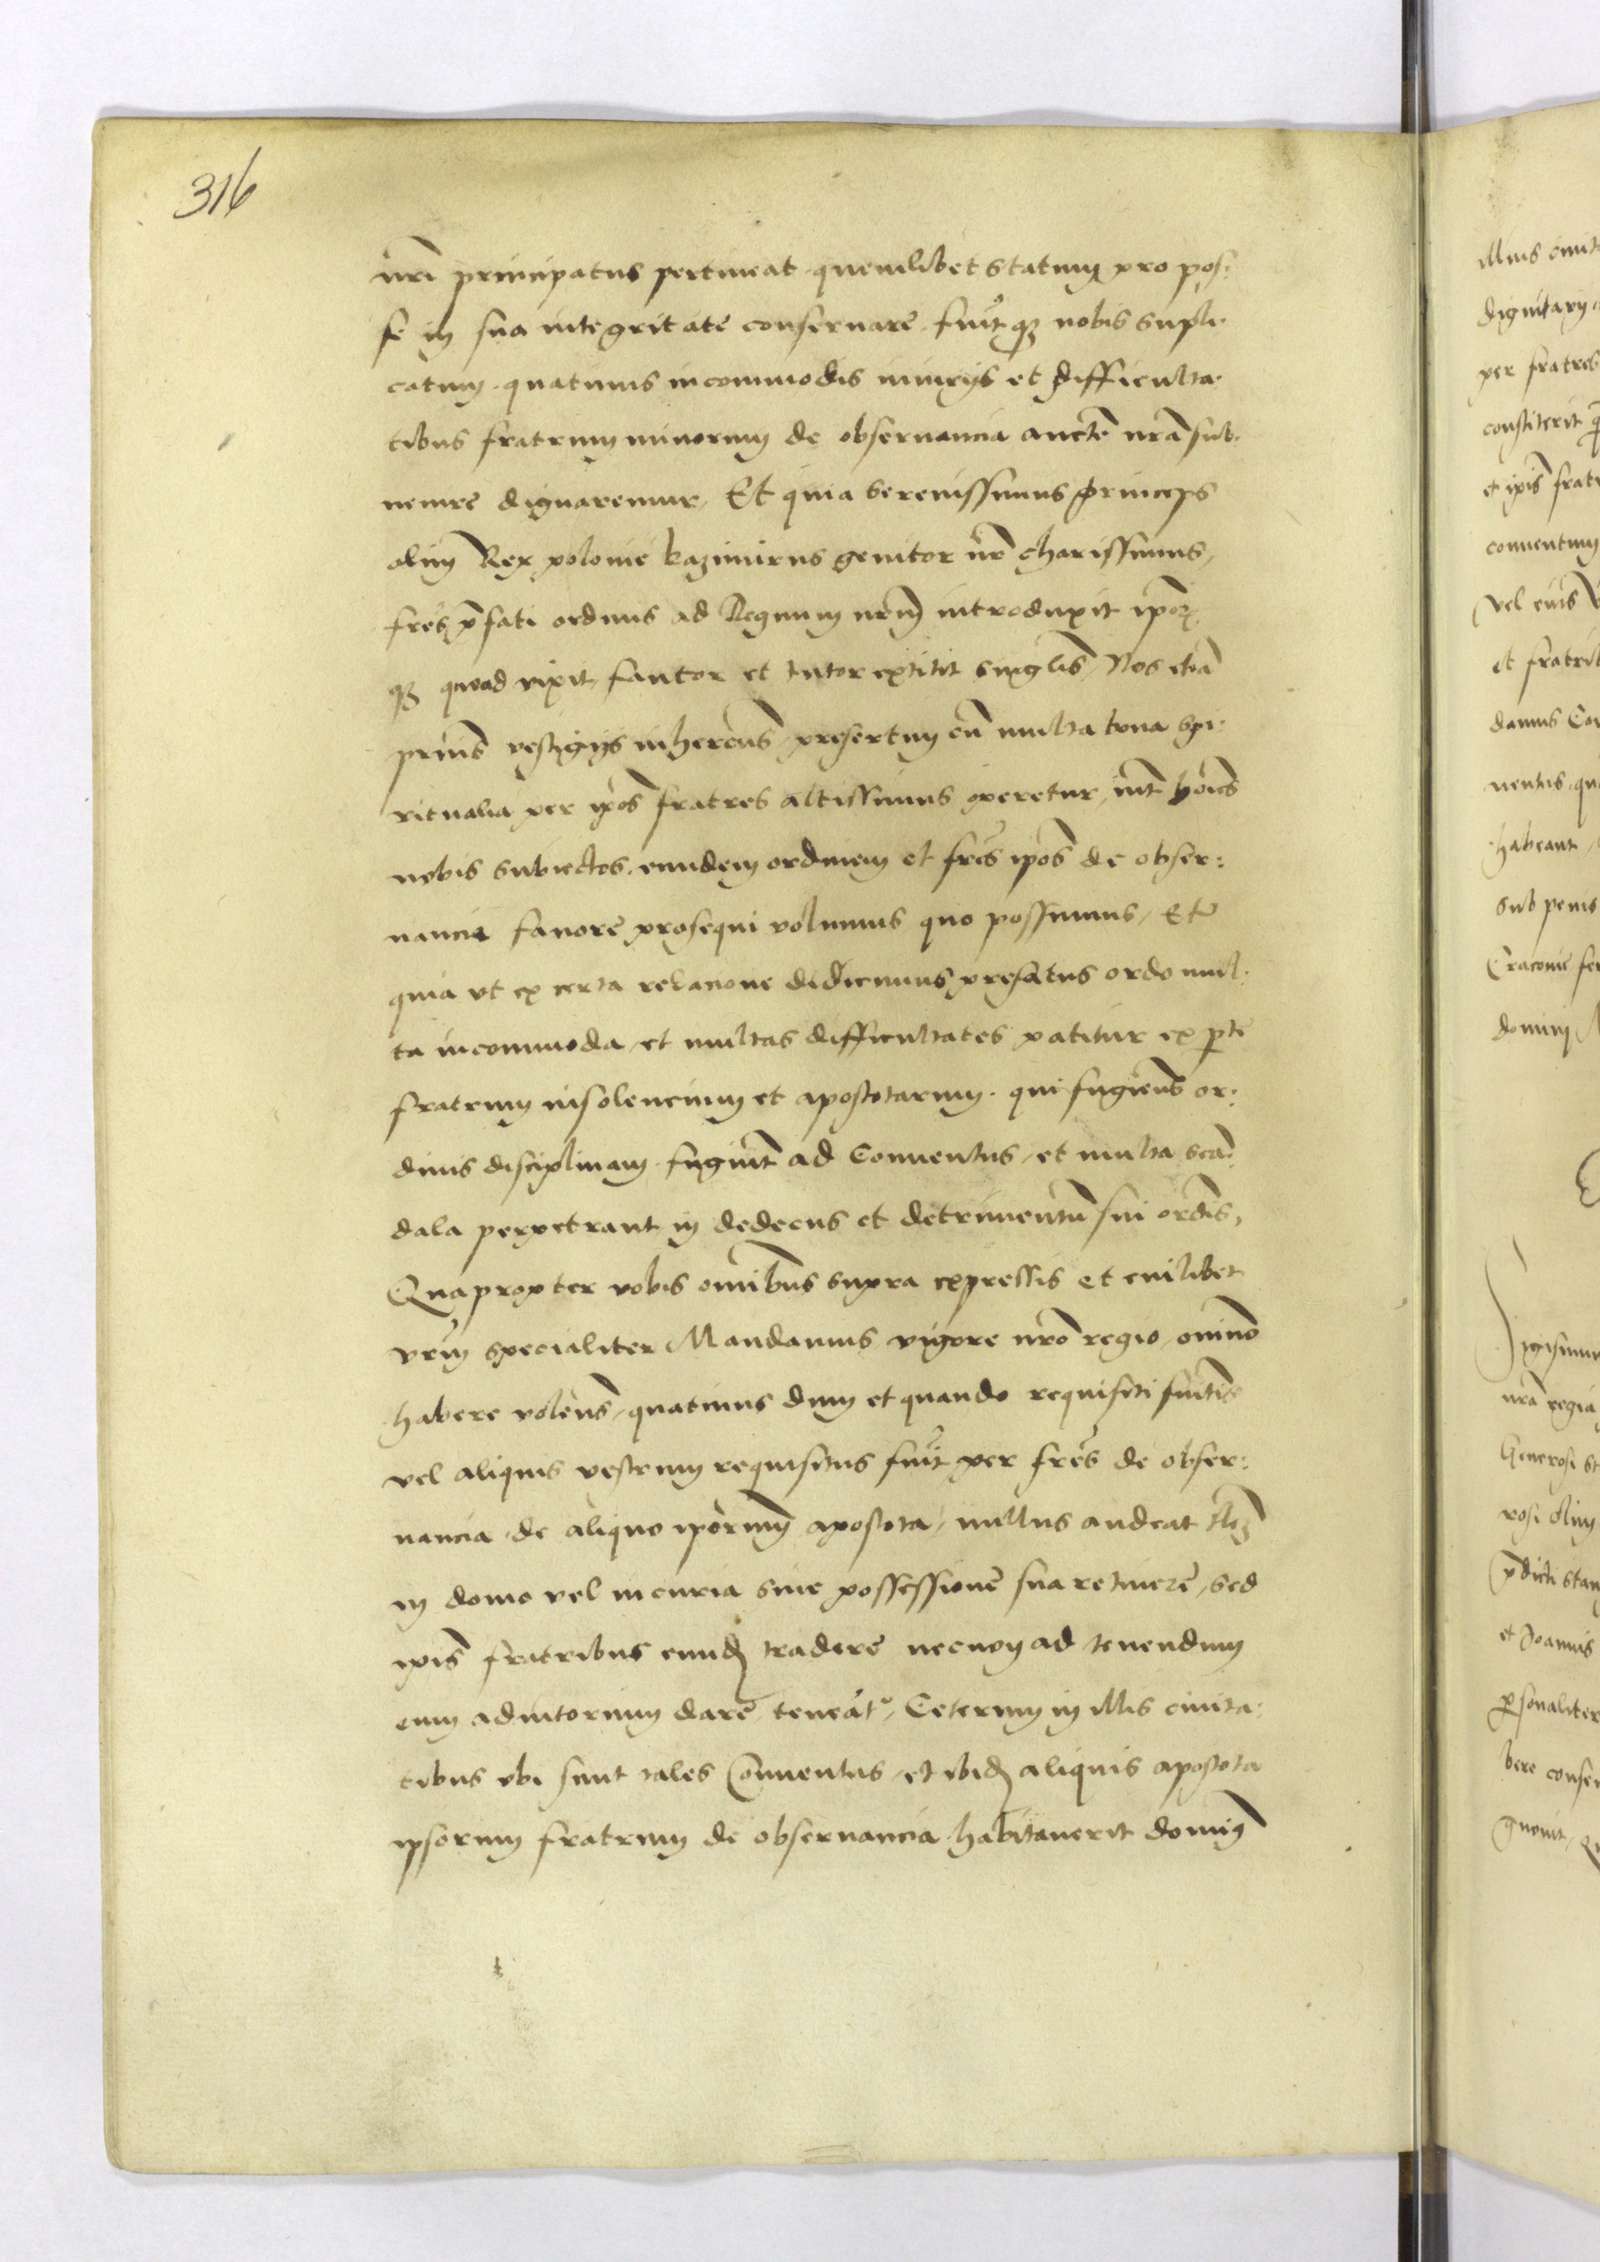 316
nri principatus pertineat quemlibet statum pro pos:
se in sua integritate conservare fuitque nobis supli
catum quatinus incommodis iniurijs et difficulta
tibus fratrum minorum de observancia aucte nra sub
venire dignaremur, Et quia Serenissimus princeps
olim Rex polonie kazimirus genitor nr charissimus,
fres pfati ordinis ad Regnum nrm introduxit ipor
que quoad vixit, fautor et tutor extitit singlis, Nos etia
prius vestigijs inherens presertim cu multa bona spi:
ritualia per ipos fratres altissimus operetur, int hoies
nobis subiectos, eundem ordinem et fres ipos de obser:
vancia favore prosequi volumus quo possumus, Et
quia ut ex certa relacione didicimus prefatus ordo mul:
ta incommoda, et multas difficultates patitur ex pte
fratrum insolencium et apostotarum. qui fugiens or:
dinis disciplinam fugiut ad Conventus, et multa scan:
dala perpetrant in dedecus et detrimentu sui ordis,
Quapropter vobis omibus supra expressis et cuilibet
vrm specialiter Mandamus vigore nro regio, omino
habere volens, quatinus dum et quando requisiti fuitis
vel aliquis vestrum requisitus fuit per fres de obser:
vancia de aliquo iporum apostota, nullus audeat
in domo vel in curia sive possessione sua retinere, sed
ipis fratribus eund tradere necnon ad tenendum
eum adiutorium dare teneat, Ceterum in illis civita:
tibus ubi sunt tales Conventus, et ibid aliquis apostota
ipsorum fratrum de observancia habitaverit domim
illius
dignitary
per fratres
constiterit
et ipis frat
conventum
vel eius
et fratrib
damus
ventus
habeant
sub penis
Cracovie
domini
Sigismu
nra regia
Generosi
rosi olim
pdicti stan
et Joannis
psonaliter
bere conse